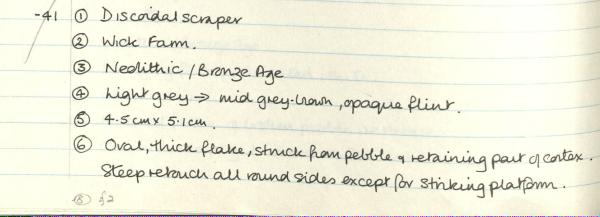 -41 ① Discoidal scraper
② Wick Farm.
③ Neolithic / Bronze Age
④ Light grey → mid grey-brown, opaque flint.
⑤ 4.5cm x 5.1cm.
⑥ Oval, thick flake, struck from pebble & retaining part of cortex.
Steep retouch all round sides except for striking platform.
⑧ £2